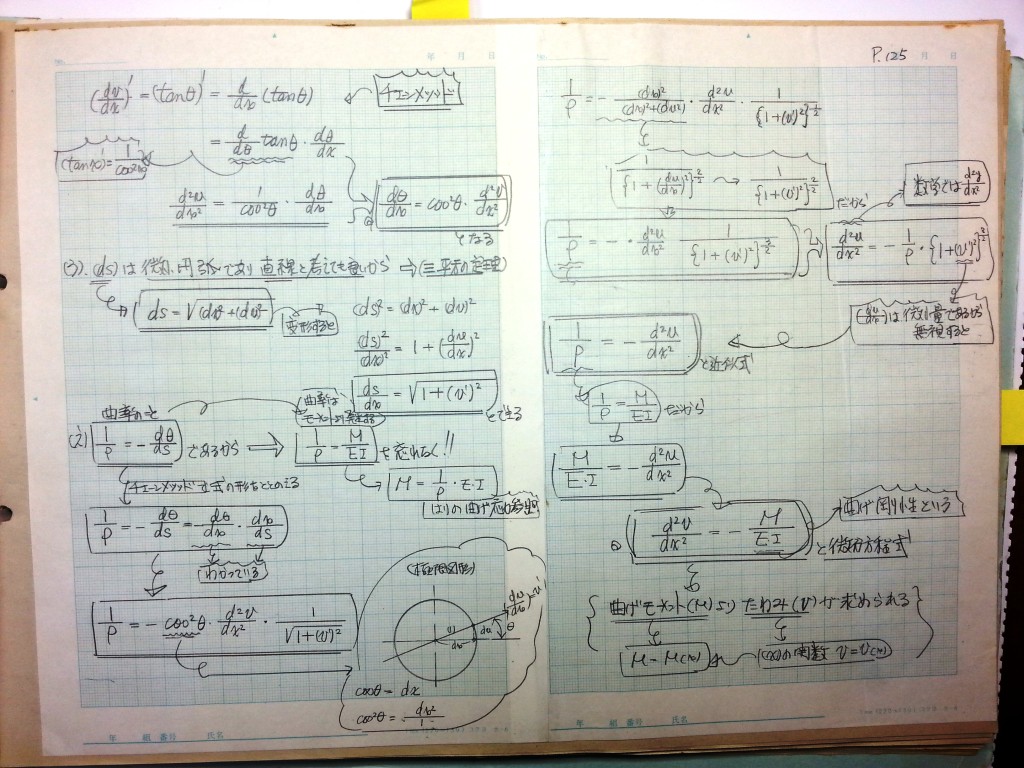 P.125
(dv/dx)' = (tanθ)' = d/dx (tanθ)
チェンメソッド
= d/dθ tanθ · dθ/dx
(tanx)' = 1/cos²x
d²v/dx² = 1/cos²θ · dθ/dx
dθ/dx = cos²θ · d²v/dx²
となる
(ds)は微小円弧であり直線と考えても良いから ⇒ (三平方の定理)
ds = √(dx)²+(dv)²
変形すると
(ds)² = (dx)² + (dv)²
(ds)²/(dx)² = 1 + (dv/dx)²
ds/dx = √1+(v')²
とできる
曲率のとき
1/ρ = - dθ/ds
であるから ⇒
曲率は
1/ρ = M/EI
を忘れるく!!
M = 1/ρ · E·I
はりの曲げ応力参照
チェーンメソッド
1/ρ = - dθ/ds = dθ/dx · dx/ds
わかっている
1/ρ = - cos²θ · d²v/dx² · 1/√1+(v')²
(極限図形)
dv/dx = v'
θ
dv
dx
cosθ = dx
cos²θ = dx²/1
1/ρ = - (dx)²/(dx)²+(dv)² · d²v/dx² · 1/{1+(v')²}^½
1/{1+(dv/dx)²}^½ → 1/{1+(v')²}^½
1/ρ = - · d²v/dx² 1/{1+(v')²}^3/2
だから
数学では d²y/dx²
d²v/dx² = - 1/ρ · {1+(v')²}^3/2
(dv/dx)は微小量であるから
無視すると
1/ρ = - d²v/dx²
と近似式
1/ρ = M/EI
だから
M/E·I = - d²v/dx²
曲げ剛性という
d²v/dx² = - M/EI
と微分方程式
曲げモーメント(M)より たわみ(v)が求められる
M = M(x)
(x)の関数 v = v(x)
年 組 番号 氏名